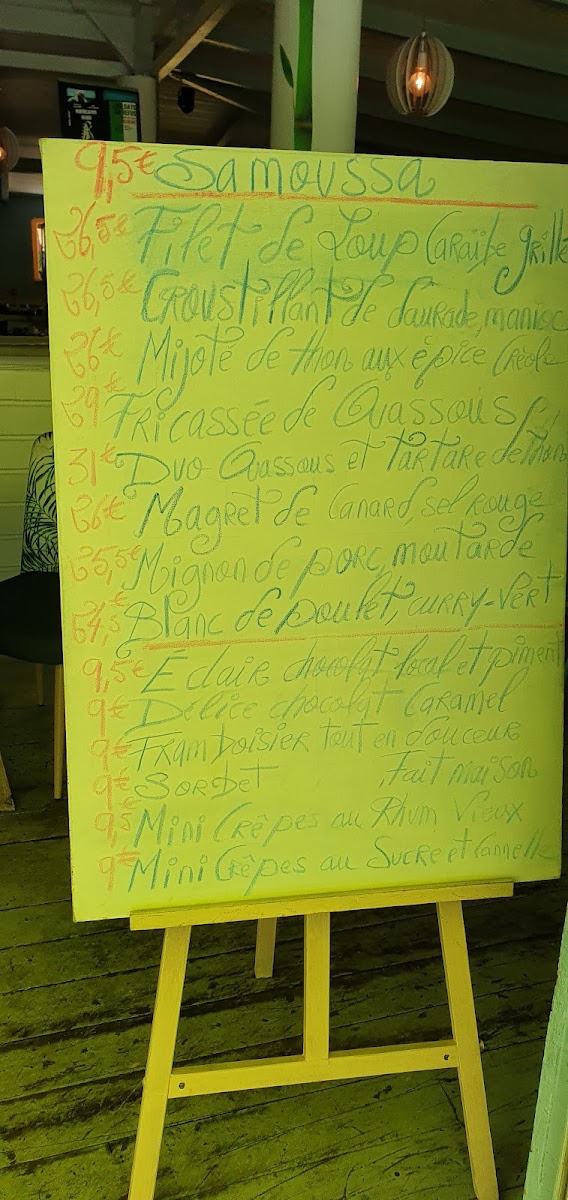 9,5€ Samoussa
26,5€ Filet de Loup Caraïbe grillé
26,5€ Croustillant de daurade, manioc
26€ Mijoté de thon aux épice Créole
29€ Fricassée de Ouassous
31€ Duo Ouassous et tartare de thon
26€ Magret de Canard, sel rouge
25,5€ Mignon de porc, moutarde
24,5€ Blanc de poulet, curry-vert
9,5€ Éclair chocolat local et piment
9€ Délice chocolat Caramel
9€ Framboisier tout en douceur
9€ Sorbet Fait maison
9,5€ Mini Crêpes au Rhum Vieux
9€ Mini Crêpes au Sucre et Cannelle